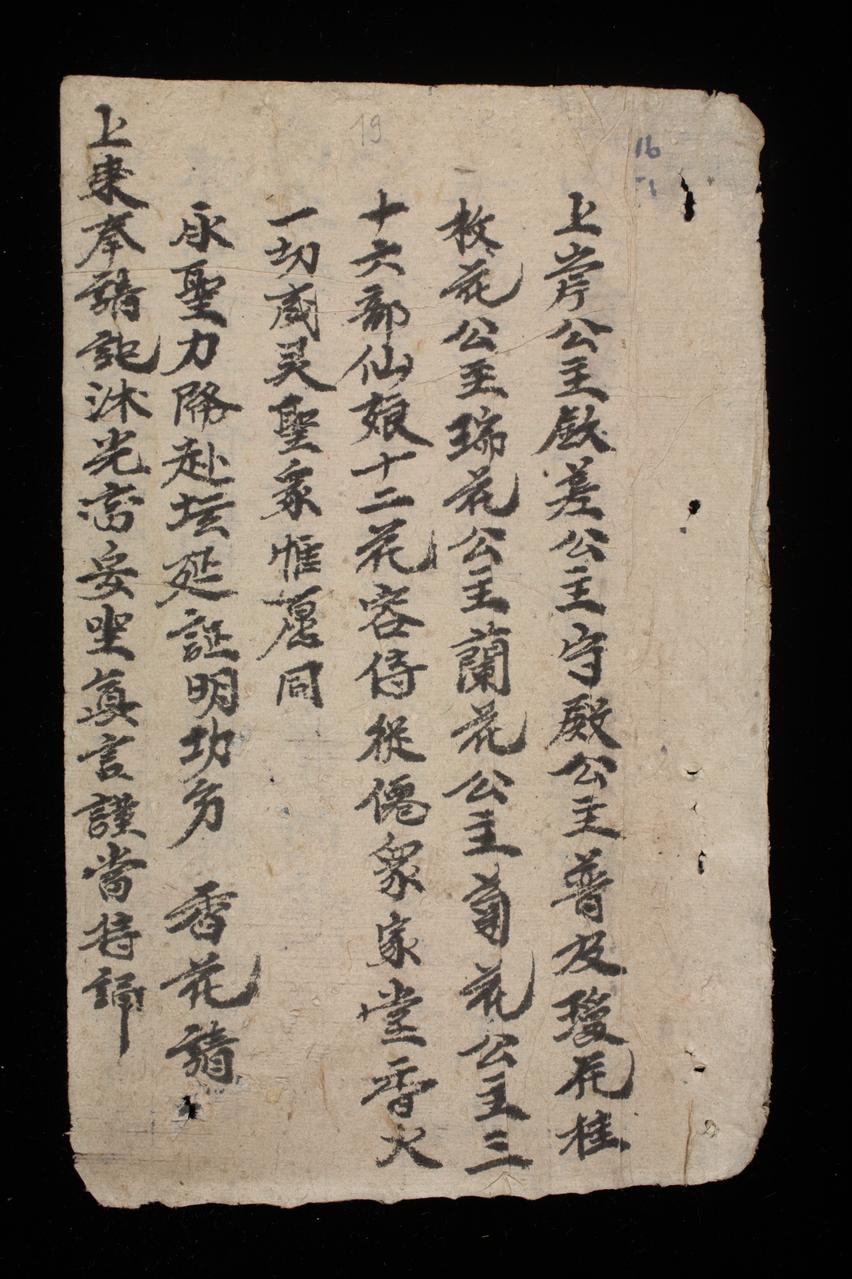 19
16
上岸公主欽差公主守殿公主普及瓊花桂
枚花公主瑞花公主蘭花公主菊花公主三
十六部仙娘十二花容侍從僊眾家堂香火
一切威灵聖眾惟愿同
承聖力降赴坛延証明功 香花請
上来奉請訖沐光安坐真言謹當持誦